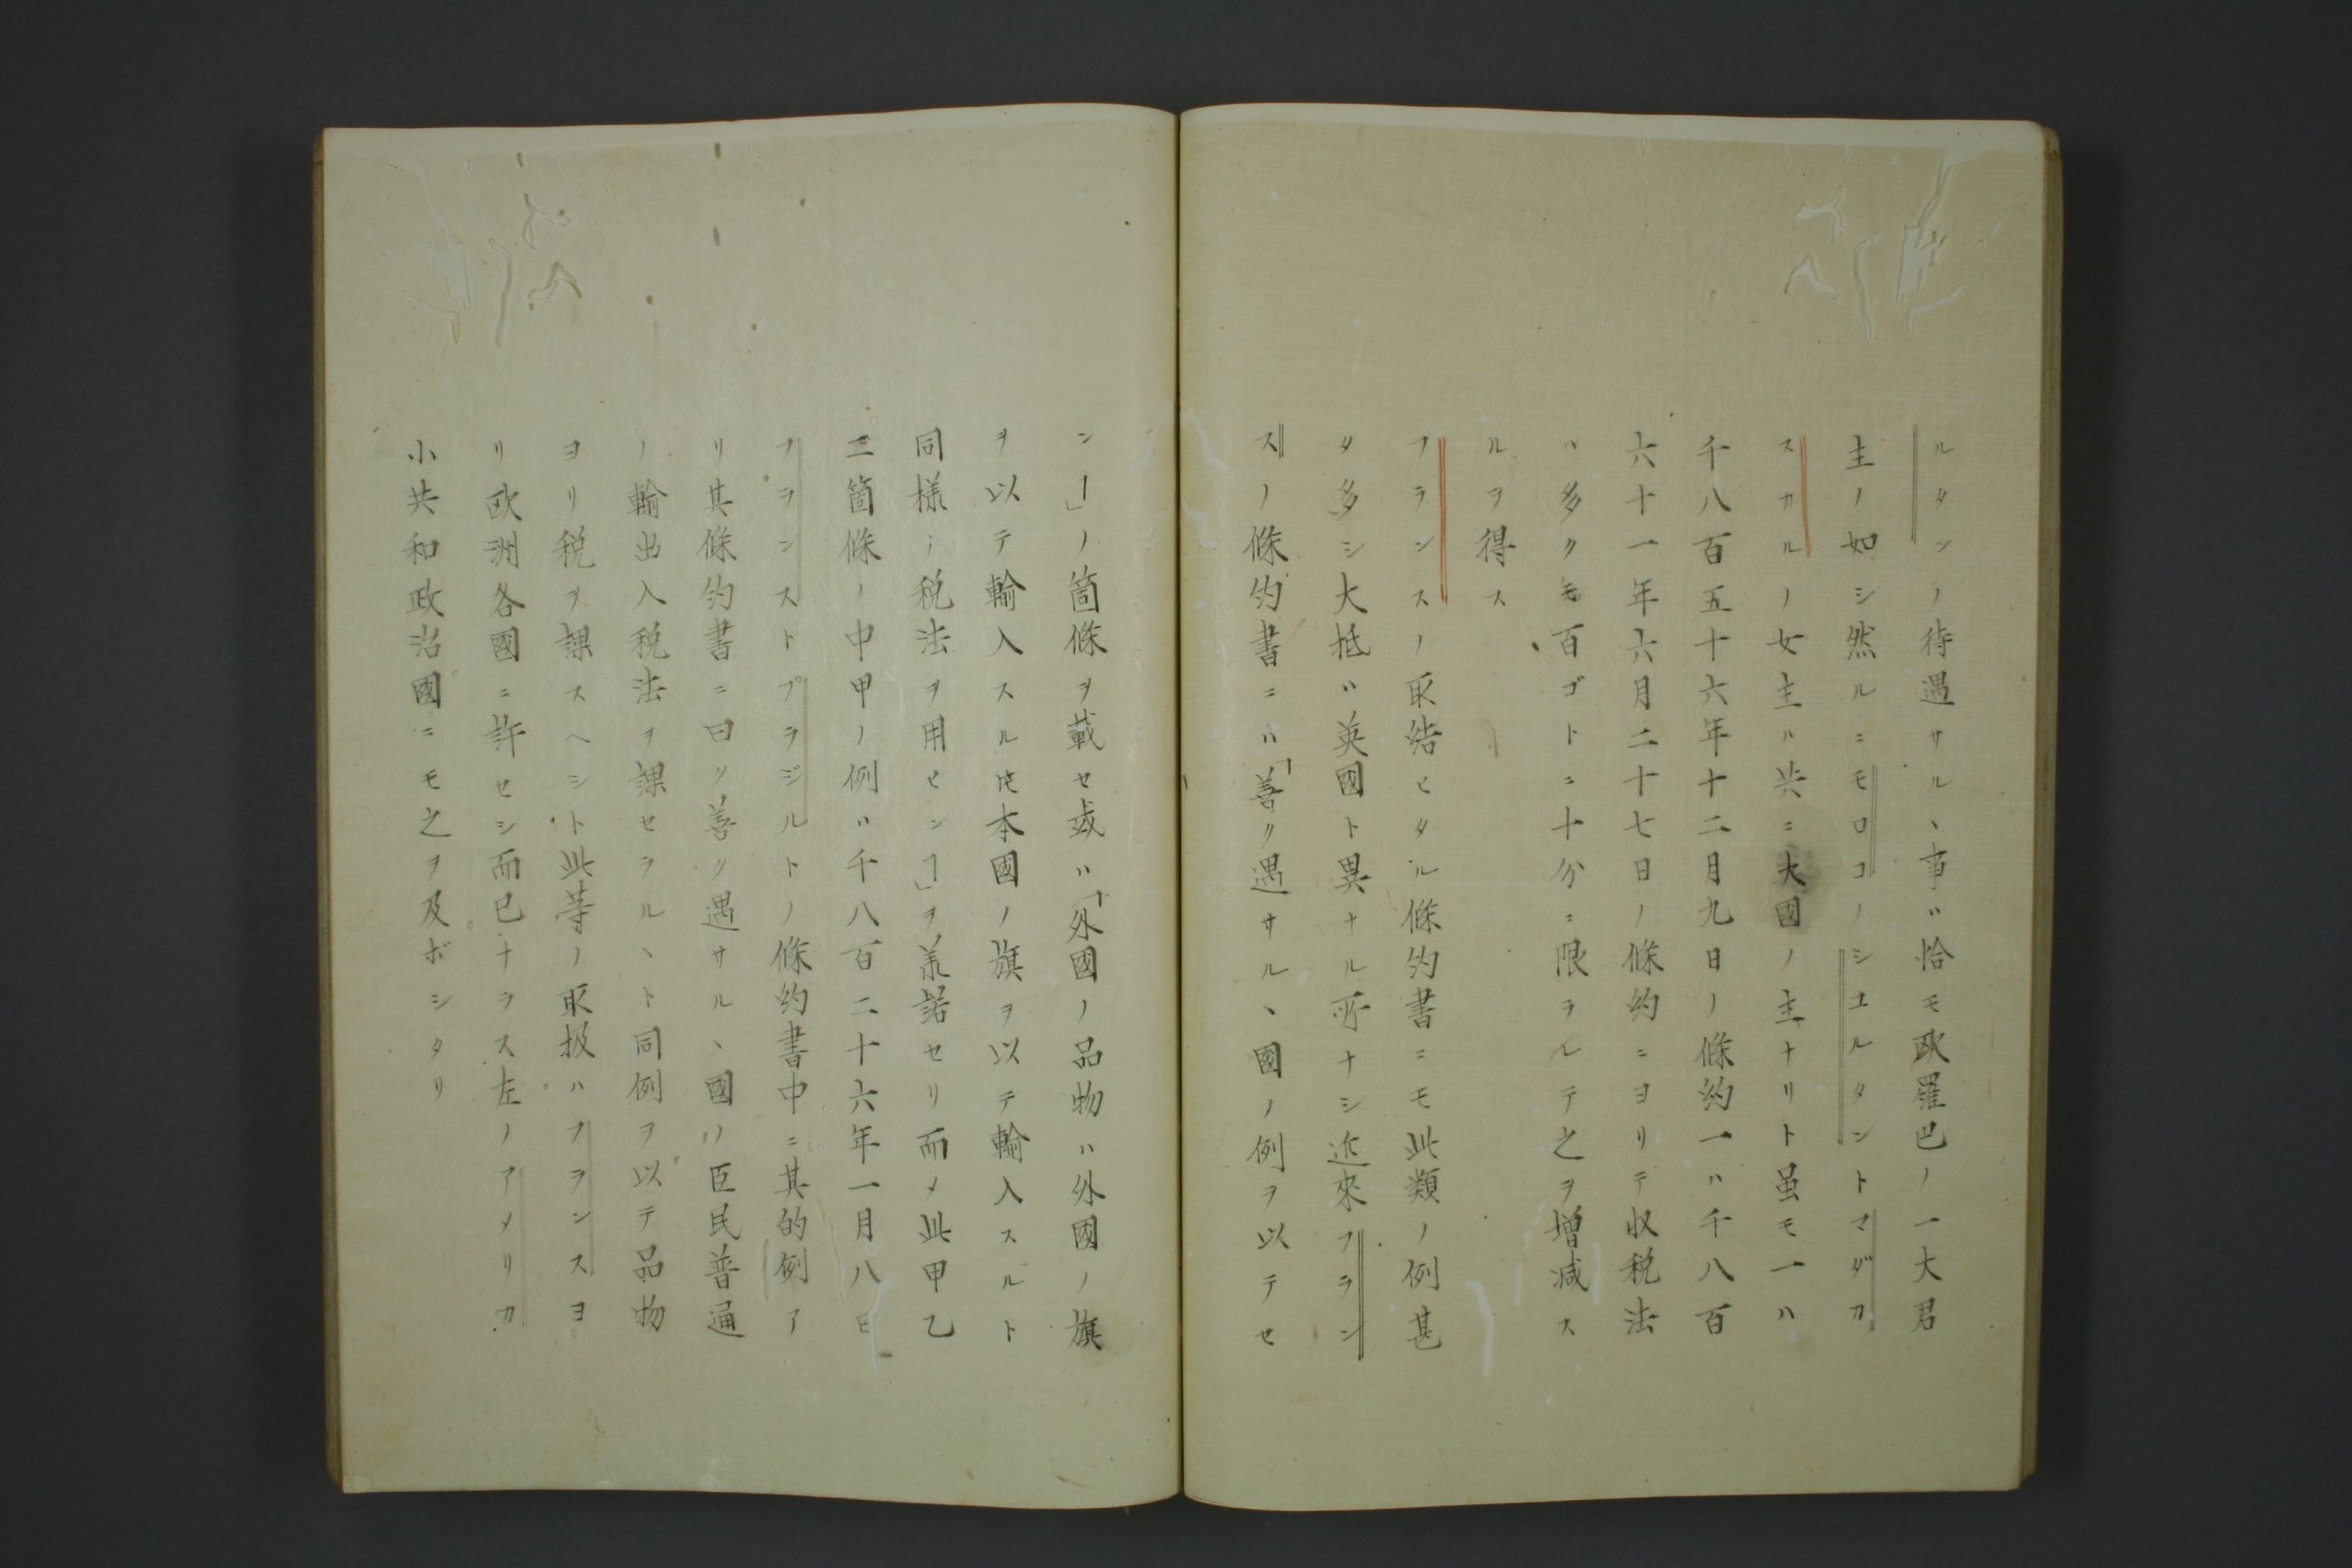 ルタンノ待遇サルヽ事ハ恰モ欧羅巴ノ一大君
主ノ如シ然ルニモロコノシユルタントマダカ
スカルノ女主ハ共ニ大國ノ主ナリト虽モ一ハ
千八百五十六年十二月九日ノ條約一ハ千八百
六十一年六月二十七日ノ條約ニヨリテ收税法
ハ多クモ百ゴトニ十分ニ限ラレテ之ヲ増减ス
ルヲ得ス
フランスノ取結ヒタル條約書ニモ此類ノ例甚
タ多シ大抵ハ英國ト異ナル所ナシ近來フラン
スノ條約書ニハ「善ク遇サルヽ國ノ例ヲ以テセ
ンヿ」ノ箇條ヲ載セ或ハ「外國ノ品物ハ外國ノ旗
ヲ以テ輸入スルモ本國ノ旗ヲ以テ輸入スルト
同様ニ税法ヲ用ヒンヿ」ヲ羕諾セリ而メ此甲乙
二箇條ノ中甲ノ例ハ千八百二十六年一月八日
フランストブラジルトノ條約書中ニ其的例ア
リ其條約書ニ曰ク善ク遇サルヽ國ノ臣民普通
ノ輸出入税法ヲ課セラルヽト同例ヲ以テ品物
ヨリ税ヲ課スヘシト此等ノ取扱ハフランスヨ
リ欧洲各國ニ許セシ而已ナラス左ノアメリカ
小共和政治國ニモ之ヲ及ボシタリ